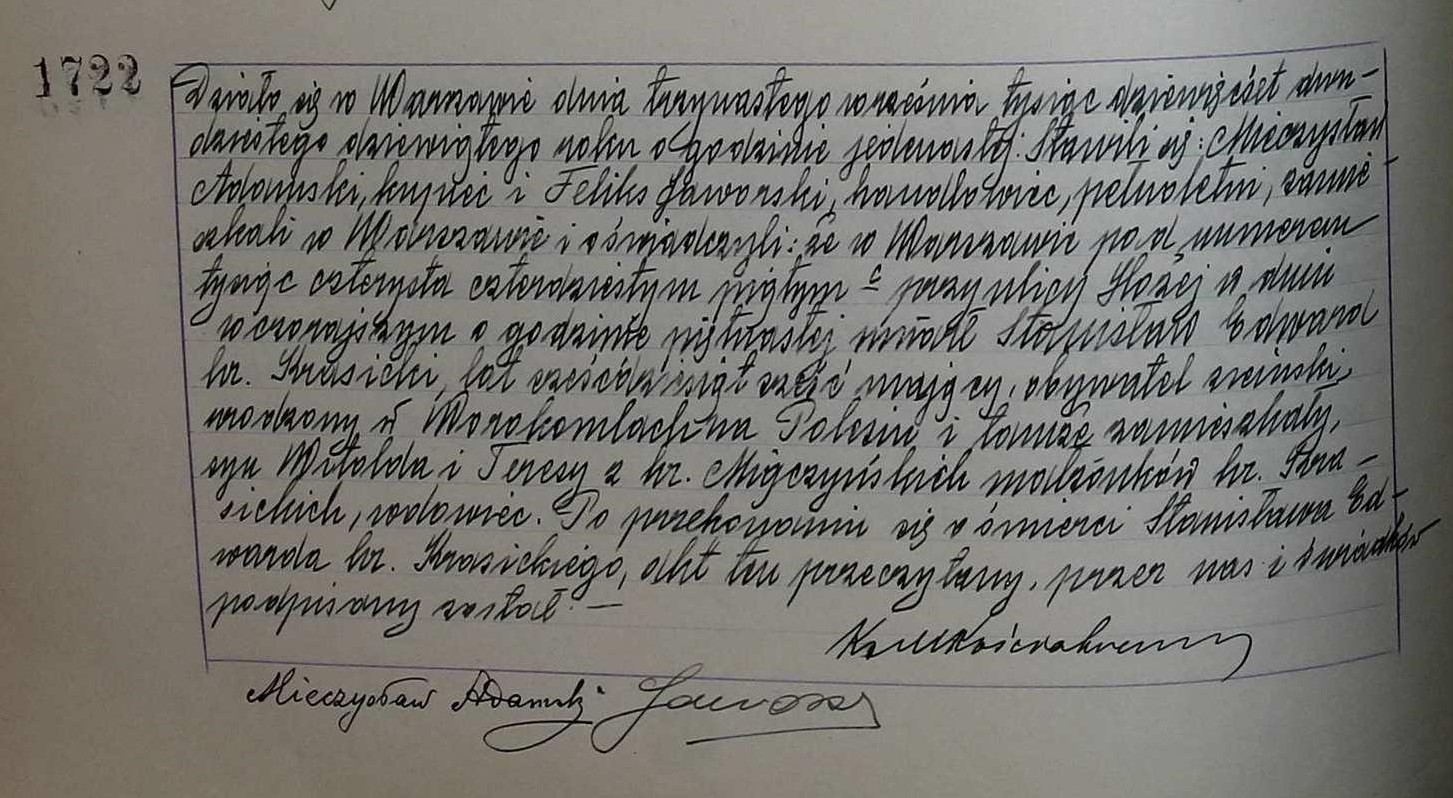 1722
Działo się w Warszawie dnia trzynastego września tysiąc dziewięćset dwu-
dziestego dziewiątego roku o godzinie jedenastej. Stawili się: Mieczysław
Adamski, kupiec i Feliks Jaworski, handlowiec, pełnoletni, zamie-
szkali w Warszawie i oświadczyli: że w Warszawie pod numerem
tysiąc czterysta czterdziestym piątym c przy ulicy Hożej w dniu
wczorajszym o godzinie piętnastej umarł Stanisław Edward
hr. Krasicki, lat sześćdziesiąt sześć mający, obywatel ziemski,
urodzony w Worokomlach na Polesiu i tamże zamieszkały,
syn Witolda i Teresy z hr. Miączyńskich małżonków hr. Kra-
sickich, wdowiec. Po przekonaniu się o śmierci Stanisława Ed-
warda hr. Krasickiego, akt ten przeczytany, przez nas i świadków
podpisany został. —
Mieczysław Adamski Jaworski